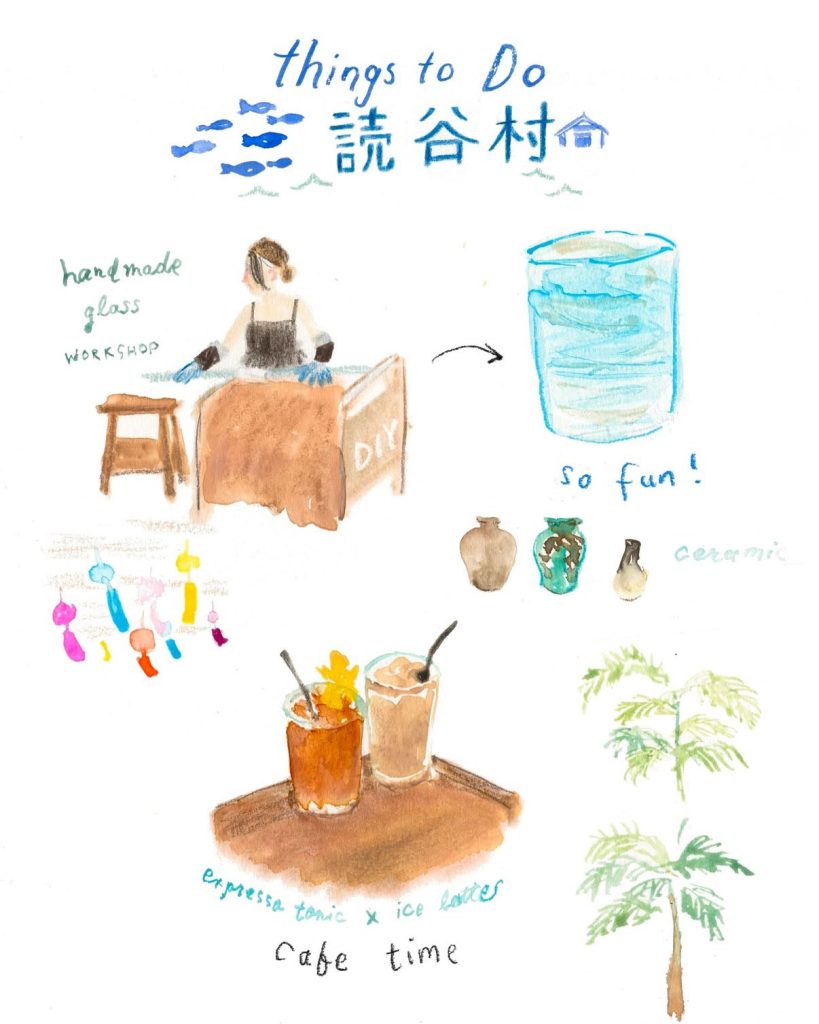 things to Do
読谷村
handmade
glass
WORKSHOP
DIY
so fun!
ceramic
expressa tonic x ice latter
cafe time